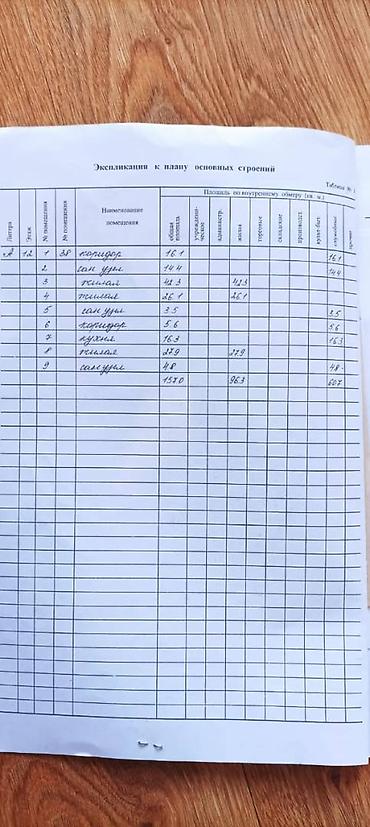 Экспликация к плану основных строений
Таблица № 1
Литера Этаж № помещения № помещения Наименование помещения Площадь по внутреннему обмеру (кв. м.)
общая площадь учрежденческое администр. жилая торговые складские производст. культ-быт. служебные прочие
А 12 1 38 коридор 16.1 16.1
2 сан узел 14.4 14.4
3 жилая 42.3 42.3
4 жилая 26.1 26.1
5 сан узел 3.5 3.5
6 коридор 5.6 5.6
7 кухня 16.3 16.3
8 жилая 27.9 27.9
9 сан узел 4.8 4.8
157.0 96.3 60.7